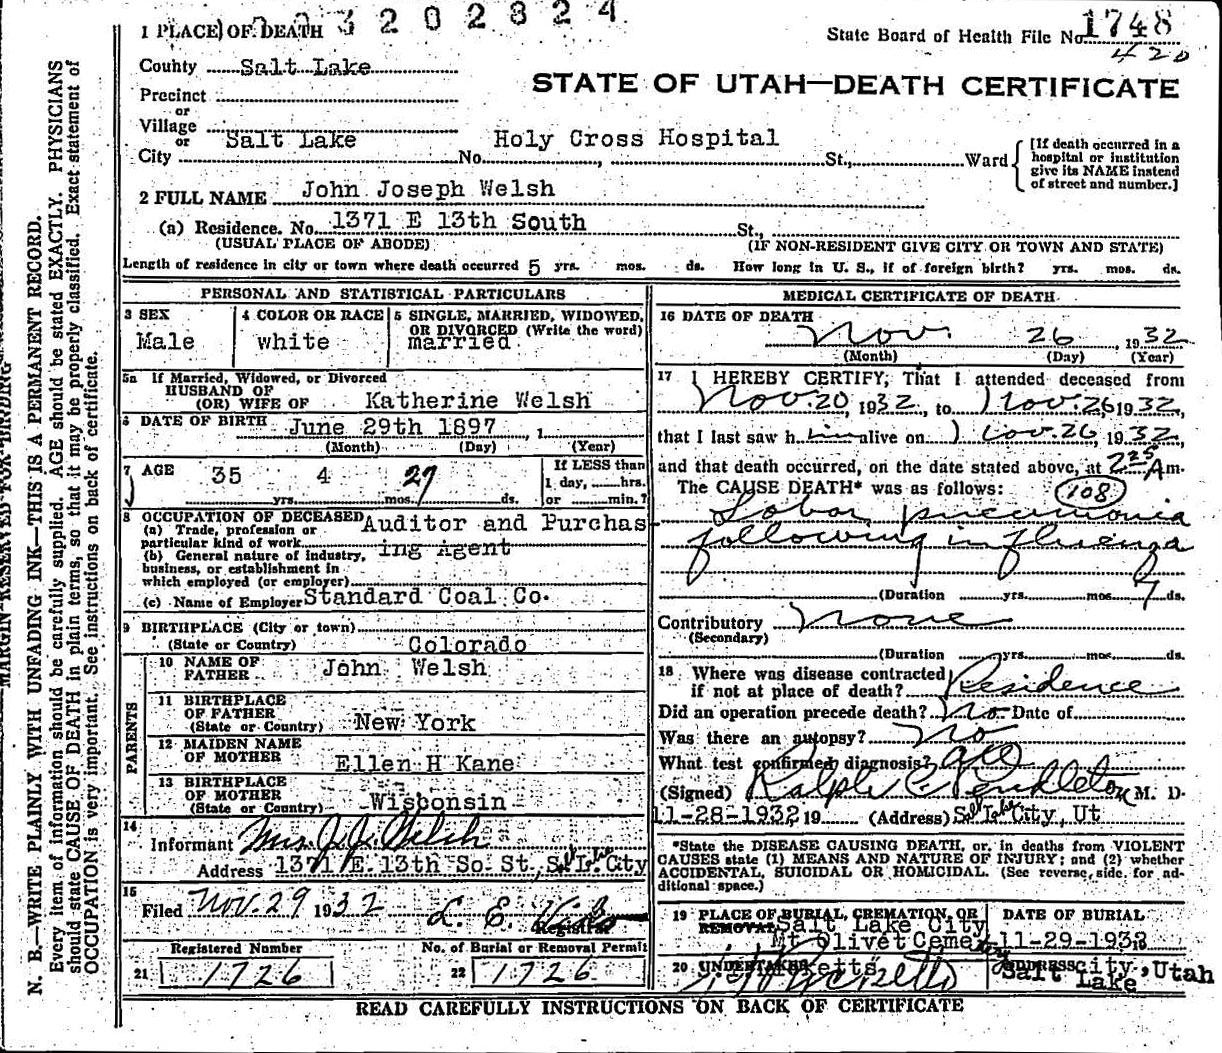 3 2 0 2 8 2 4
1 PLACE OF DEATH
State Board of Health File No. 1748
420
County Salt Lake
STATE OF UTAH—DEATH CERTIFICATE
Precinct
or
Village
or
Salt Lake Holy Cross Hospital
City No. St., Ward
[If death occurred in a hospital or institution give its NAME instead of street and number.]
2 FULL NAME John Joseph Welsh
(a) Residence. No. 1371 E 13th South St.,
(USUAL PLACE OF ABODE) (IF NON-RESIDENT GIVE CITY OR TOWN AND STATE)
Length of residence in city or town where death occurred 5 yrs. mos. ds. How long in U. S., if of foreign birth? yrs. mos. ds.
PERSONAL AND STATISTICAL PARTICULARS
3 SEX
Male
4 COLOR OR RACE
white
5 SINGLE, MARRIED, WIDOWED, OR DIVORCED (Write the word)
married
5a If Married, Widowed, or Divorced
HUSBAND OF
(OR) WIFE OF Katherine Welsh
6 DATE OF BIRTH June 29th 1897, 1
(Month) (Day) (Year)
7 AGE 35 4 27
yrs. mos. ds.
If LESS than
1 day, hrs.
or min.?
8 OCCUPATION OF DECEASED
(a) Trade, profession or particular kind of work Auditor and Purchas
ing Agent
(b) General nature of industry, business, or establishment in which employed (or employer)
(c) Name of Employer Standard Coal Co.
9 BIRTHPLACE (City or town)
(State or Country) Colorado
PARENTS
10 NAME OF FATHER John Welsh
11 BIRTHPLACE OF FATHER
(State or Country) New York
12 MAIDEN NAME OF MOTHER Ellen H Kane
13 BIRTHPLACE OF MOTHER
(State or Country) Wisconsin
14
Informant Mrs. J. J. Welsh
Address 1371 E. 13th So. St., Salt Lake City
15
Filed Nov. 29 1932 L. E.
Registrar
Registered Number No. of Burial or Removal Permit
21 1726 22 1726
MEDICAL CERTIFICATE OF DEATH
16 DATE OF DEATH
Nov. 26, 1932
(Month) (Day) (Year)
17 I HEREBY CERTIFY, That I attended deceased from
Nov. 20, 1932, to Nov. 26, 1932,
that I last saw h im alive on Nov. 26, 1932,
and that death occurred, on the date stated above, at 2 25 A m.
The CAUSE DEATH* was as follows: 108
Lobar pneumonia
following influenza
(Duration yrs. mos. 7 ds.
Contributory None
(Secondary)
(Duration yrs. mos. ds.
18 Where was disease contracted
if not at place of death? Residence
Did an operation precede death? No Date of
Was there an autopsy? No
What test confirmed diagnosis?
(Signed) Ralph C. Pendleton M. D.
11-28-1932, 19 (Address) Salt Lake City, Ut
*State the DISEASE CAUSING DEATH, or, in deaths from VIOLENT
CAUSES state (1) MEANS AND NATURE OF INJURY; and (2) whether
ACCIDENTAL, SUICIDAL OR HOMICIDAL. (See reverse side for ad-
ditional space.)
19 PLACE OF BURIAL, CREMATION, OR REMOVAL
Salt Lake City
Mt Olivet Cemetery
DATE OF BURIAL
11-29-1932
20 UNDERTAKER
ADDRESS
Salt Lake City, Utah
READ CAREFULLY INSTRUCTIONS ON BACK OF CERTIFICATE
MARGIN RESERVED FOR BINDING
N. B.—WRITE PLAINLY WITH UNFADING INK—THIS IS A PERMANENT RECORD.
Every item of information should be carefully supplied. AGE should be stated EXACTLY. PHYSICIANS
should state CAUSE OF DEATH in plain terms, so that it may be properly classified. Exact statement of
OCCUPATION is very important. See instructions on back of certificate.